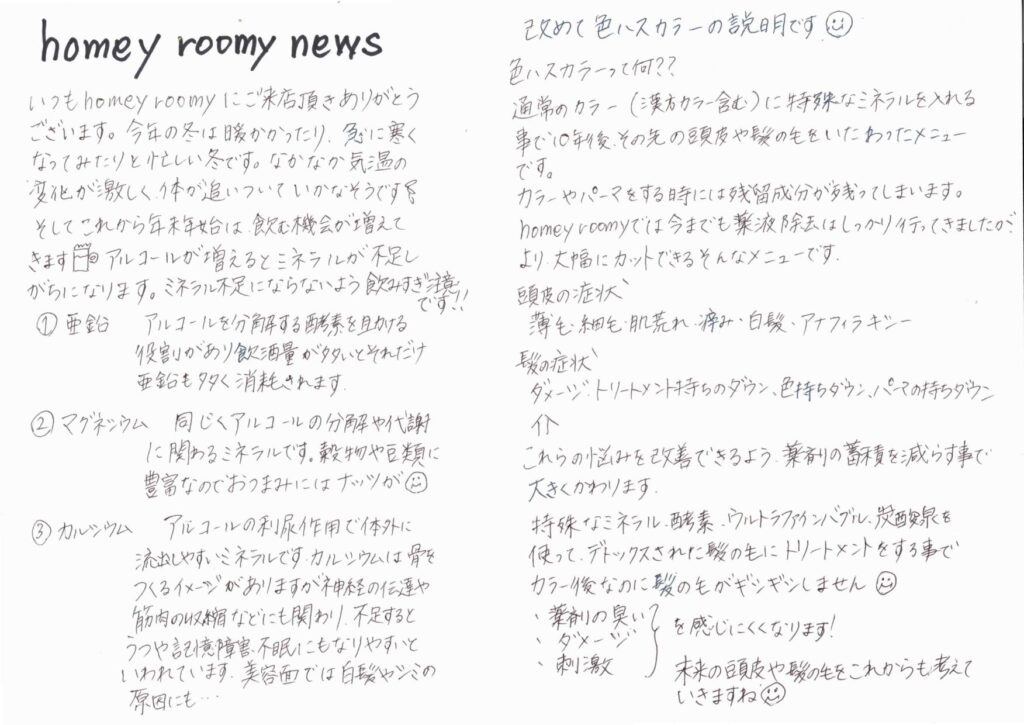 homey roomy news
いつもhomey roomyにご来店頂きありがとう
ございます。今年の冬は暖かかったり、急に寒く
なってみたりと忙しい冬です。なかなか気温の
変化が激しく、体が追いついていかなそうです
そしてこれから年末年始は、飲む機会が増えて
きます アルコールが増えるとミネラルが不足し
がちになります。ミネラル不足にならないよう飲みすぎ注意
です!!
① 亜鉛 アルコールを分解する酵素を助ける
役割があり飲酒量が多いとそれだけ
亜鉛も多く消耗されます。
② マグネシウム 同じくアルコールの分解や代謝
に関わるミネラルです。穀物や豆類に
豊富なのでおつまみにはナッツが☺
③ カルシウム アルコールの利尿作用で体外に
流出しやすいミネラルです。カルシウムは骨を
つくるイメージがありますが神経の伝達や
筋肉の収縮などにも関わり、不足すると
うつや記憶障害、不眠にもなりやすいと
いわれています。美容面では白髪やシミの
原因にも…
改めて色ハスカラーの説明です☺
色ハスカラーって何??
通常のカラー(漢方カラー含む)に特殊なミネラルを入れる
事で10年後、その先の頭皮や髪の毛をいたわったメニュー
です。
カラーやパーマをする時には残留成分が残ってしまいます。
homey roomyでは今までも薬液除去はしっかり行ってきましたが、
より大幅にカットできるそんなメニューです。
頭皮の症状
薄毛・細毛・肌荒れ・痒み・白髪、アナフィラキシー
髪の症状
ダメージ、トリートメント持ちのダウン、色持ちダウン、パーマの持ちダウン
これらの悩みを改善できるよう、薬剤の蓄積を減らす事で
大きくかわります。
特殊なミネラル、酵素、ウルトラファインバブル、炭酸泉を
使って、デトックスされた髪の毛にトリートメントをする事で
カラー後なのに髪の毛がギシギシしません☺
・薬剤の臭い
・ダメージ
・刺激
を感じにくくなります!
未来の頭皮や髪の毛をこれからも考えて
いきますね☺